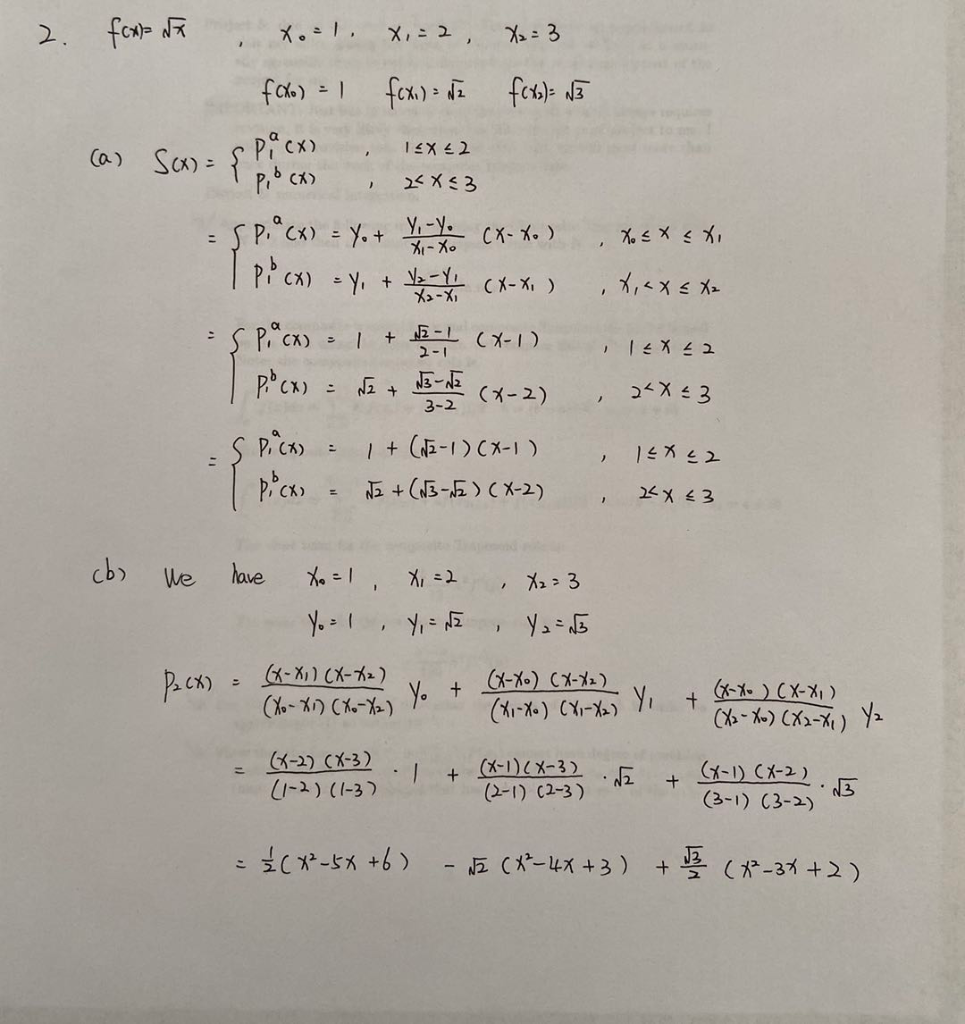 2. f(x)= √x , x₀ = 1, x₁ = 2, x₂ = 3
f(x₀) = 1 f(x₁) = √2 f(x₂)= √3
(a) S(x) = { P₁ᵃ(x) , 1≤x≤2
P₁ᵇ(x) , 2<x≤3
= { P₁ᵃ(x) = y₀ + (y₁-y₀)/(x₁-x₀) (x-x₀) , x₀ ≤ x ≤ x₁
P₁ᵇ(x) = y₁ + (y₂-y₁)/(x₂-x₁) (x-x₁) , x₁ < x ≤ x₂
= { P₁ᵃ(x) = 1 + (√2-1)/(2-1) (x-1) , 1≤x≤2
P₁ᵇ(x) = √2 + (√3-√2)/(3-2) (x-2) , 2<x≤3
= { P₁ᵃ(x) = 1 + (√2-1)(x-1) , 1≤x≤2
P₁ᵇ(x) = √2 + (√3-√2)(x-2) , 2<x≤3
(b) We have x₀ = 1 , x₁ = 2 , x₂ = 3
y₀ = 1 , y₁ = √2 , y₂ = √3
P₂(x) = (x-x₁)(x-x₂)/(x₀-x₁)(x₀-x₂) y₀ + (x-x₀)(x-x₂)/(x₁-x₀)(x₁-x₂) y₁ + (x-x₀)(x-x₁)/(x₂-x₀)(x₂-x₁) y₂
= (x-2)(x-3)/(1-2)(1-3) · 1 + (x-1)(x-3)/(2-1)(2-3) · √2 + (x-1)(x-2)/(3-1)(3-2) · √3
= ½(x²-5x+6) - √2(x²-4x+3) + √3/2 (x²-3x+2)